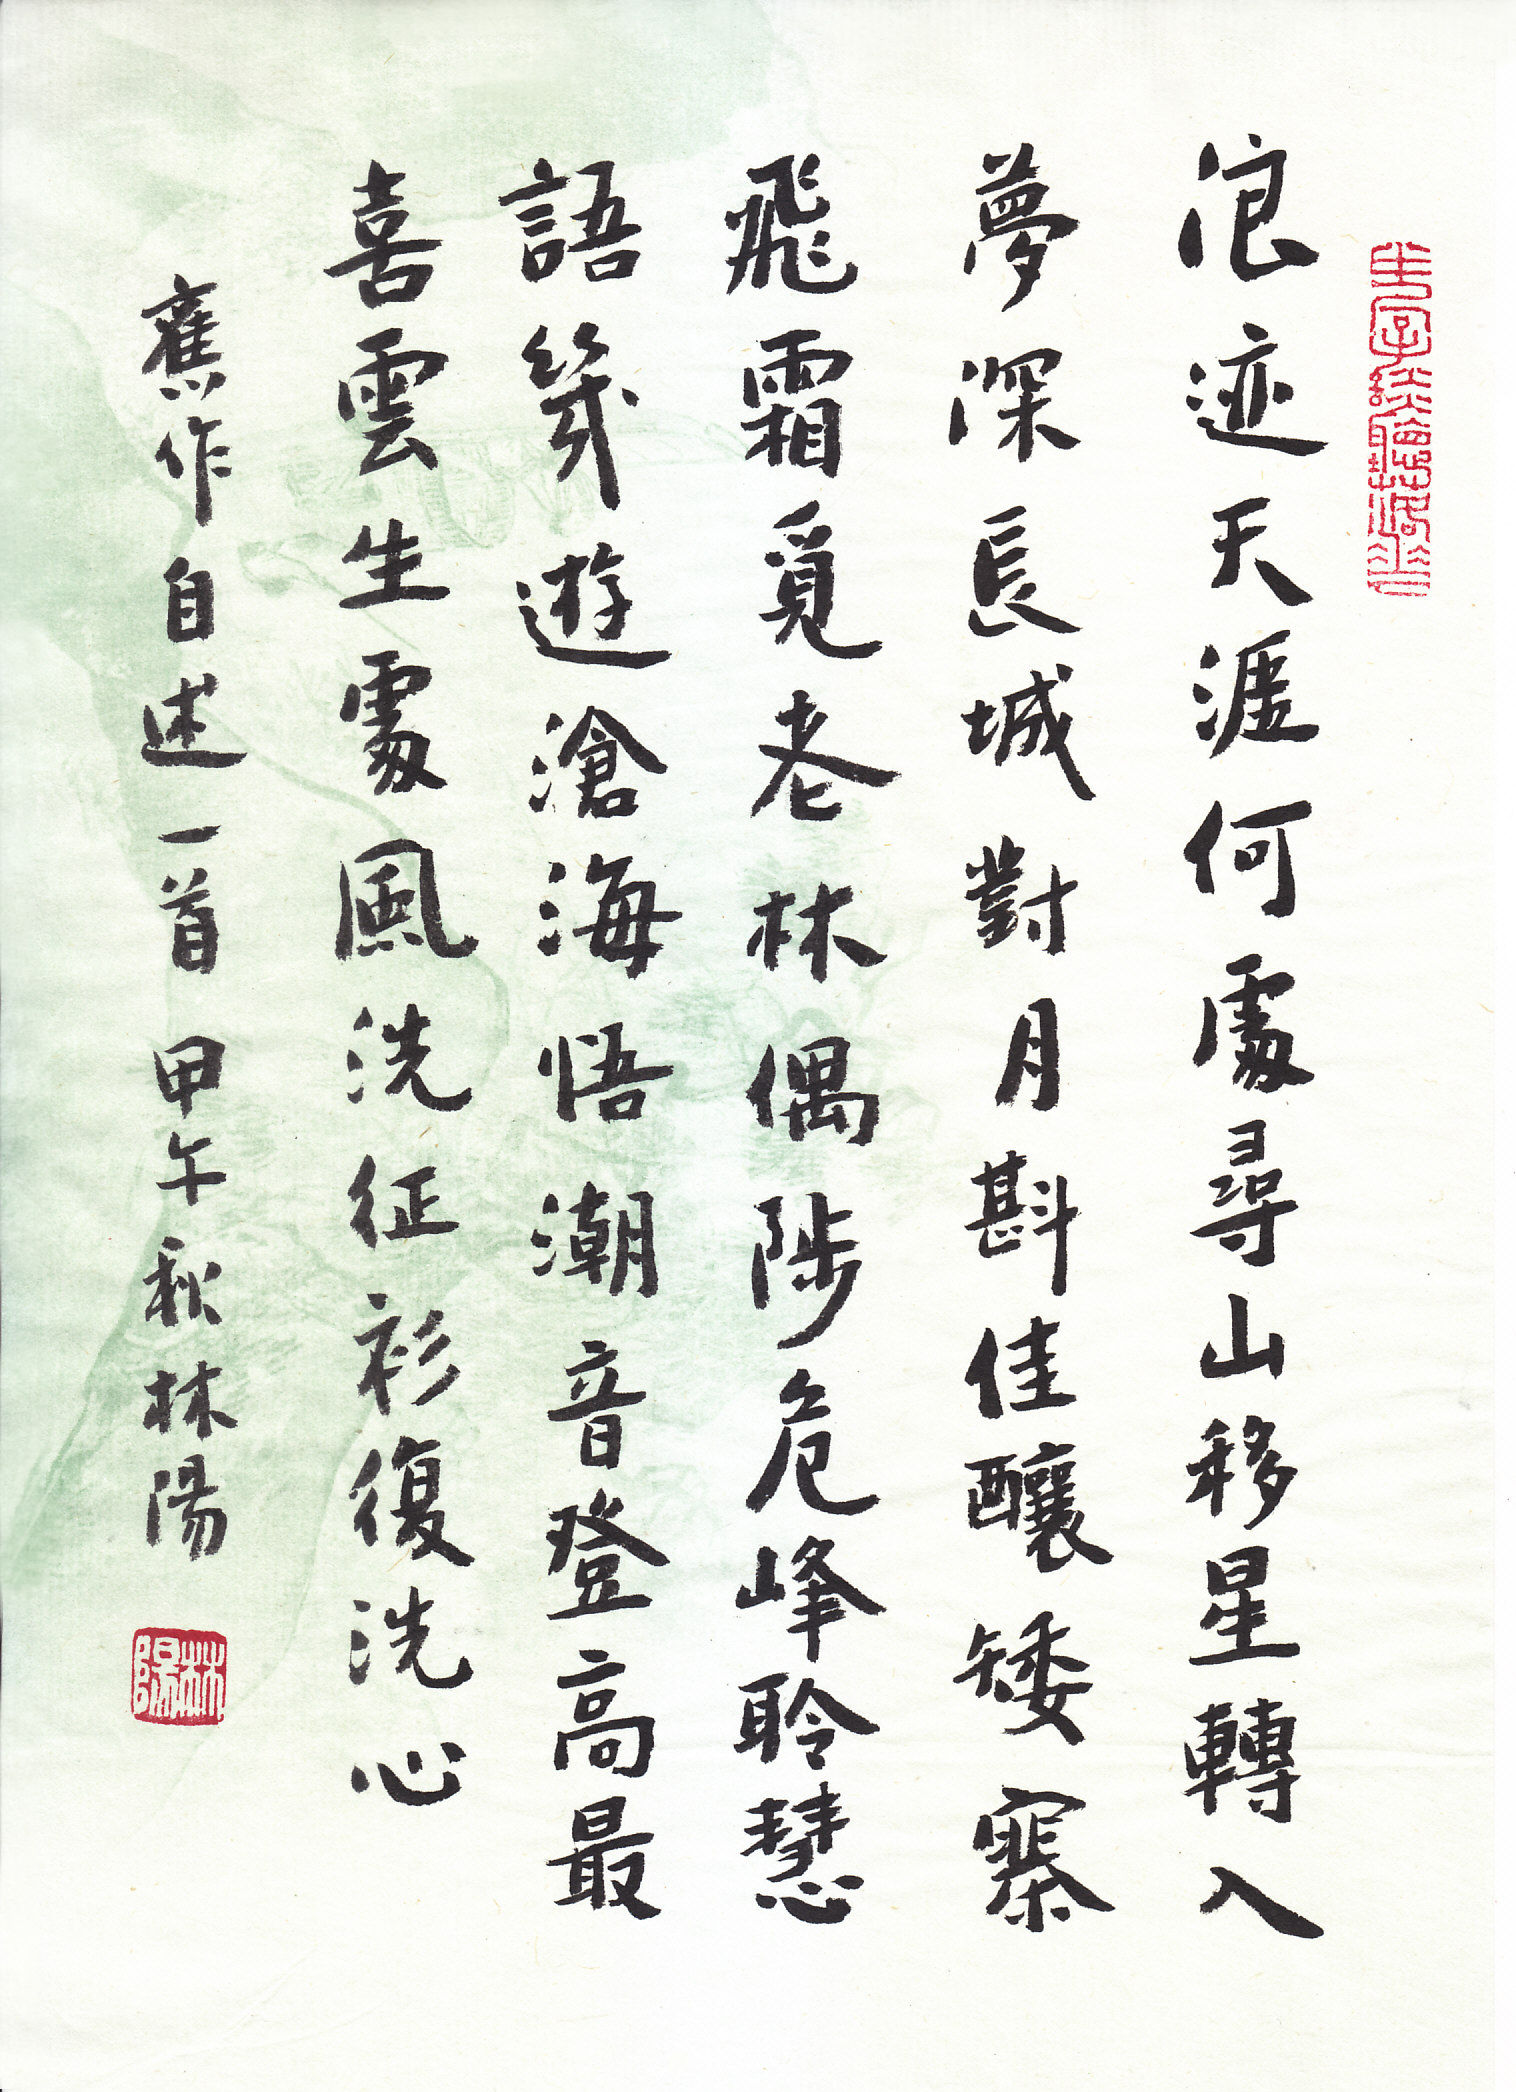 浪迹天涯何處尋山移星轉入
夢深長城對月斟佳釀矮寨
飛霜覓老林偶陟危峰聆慧
語幾遊滄海悟潮音登高最
喜雲生處風洗征衫復洗心
舊作自述一首 甲午秋林陽
林陽